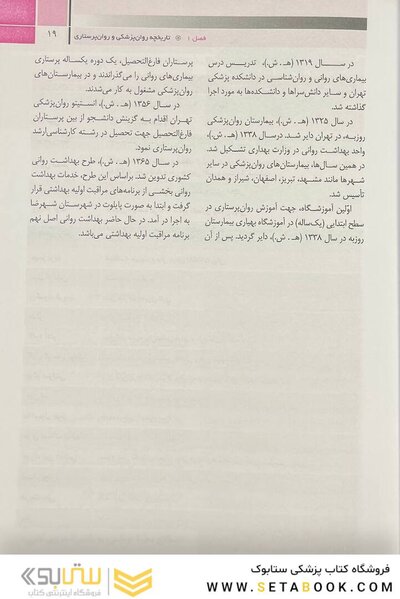 فصل ۱ ⦿ تاریخچه روان‌پزشکی و روان‌پرستاری
۱۹
در ســـال ۱۳۱۹ (هـ. ش.)، تدریـس درس
بیماری‌های روانی و روان‌شناسی در دانشکده پزشکی
تهران و سـایر دانش‌سراها و دانشکده‌ها به مورد اجرا
گذاشته شد.
در سال ۱۳۲۵ (هـ. ش.)، بیمارستان روان‌پزشکی
روزبـه، در تهران دایر شـد. درسال ۱۳۳۸ (هـ. ش.)،
واحد بهداشـت روانی در وزارت بهداری تشـکیل شد.
در همین سال‌ها، بیمارستان‌های روان‌پزشکی در سایر
شـهرها مانند مشـهد، تبریز، اصفهان، شیراز و همدان
تأسیس شد.
اوّلین آموزشـگاه، جهت آموزش روان‌پرستاری در
سطح ابتدایی (یک‌ساله) در آموزشگاه بهیاری بیمارستان
روزبه در سال ۱۳۳۸ (هـ. ش.)، دایر گردید. پس از آن
پرسـتاران فارغ‌التحصیـل، یک دوره یکسـاله پرستاری
بیماری‌های روانی را می‌گذراندند و در بیمارستان‌های
روان‌پزشکی مشغول به کار می‌شدند.
در سـال ۱۳۵۶ (هـ. ش.)، انسـتیتو روان‌پزشکی
تهـران اقدام بـه گزینش دانشـجو از بین پرسـتاران
فارغ‌التحصیل جهت تحصیل در رشـته کارشناسی‌ارشد
روان‌پرستاری نمود.
در سـال ۱۳۶۵ (هـ. ش.)، طرح بهداشـت روانی
کشوری تدوین شد. براساس این طرح، خدمات بهداشت
روانی بخشـی از برنامه‌های مراقبت اولیه بهداشتی قرار
گرفت و ابتدا به صورت پایلوت در شهرستان شهرضا
به اجرا در آمد. در حال حاضر بهداشت روانی اصل نهم
برنامه مراقبت اولیه بهداشتی می‌باشد.
فروشگاه کتاب پزشکی ستابوک
WWW.SETABOOK.COM
ستابوک
فروشگاه اینترنتی کتاب